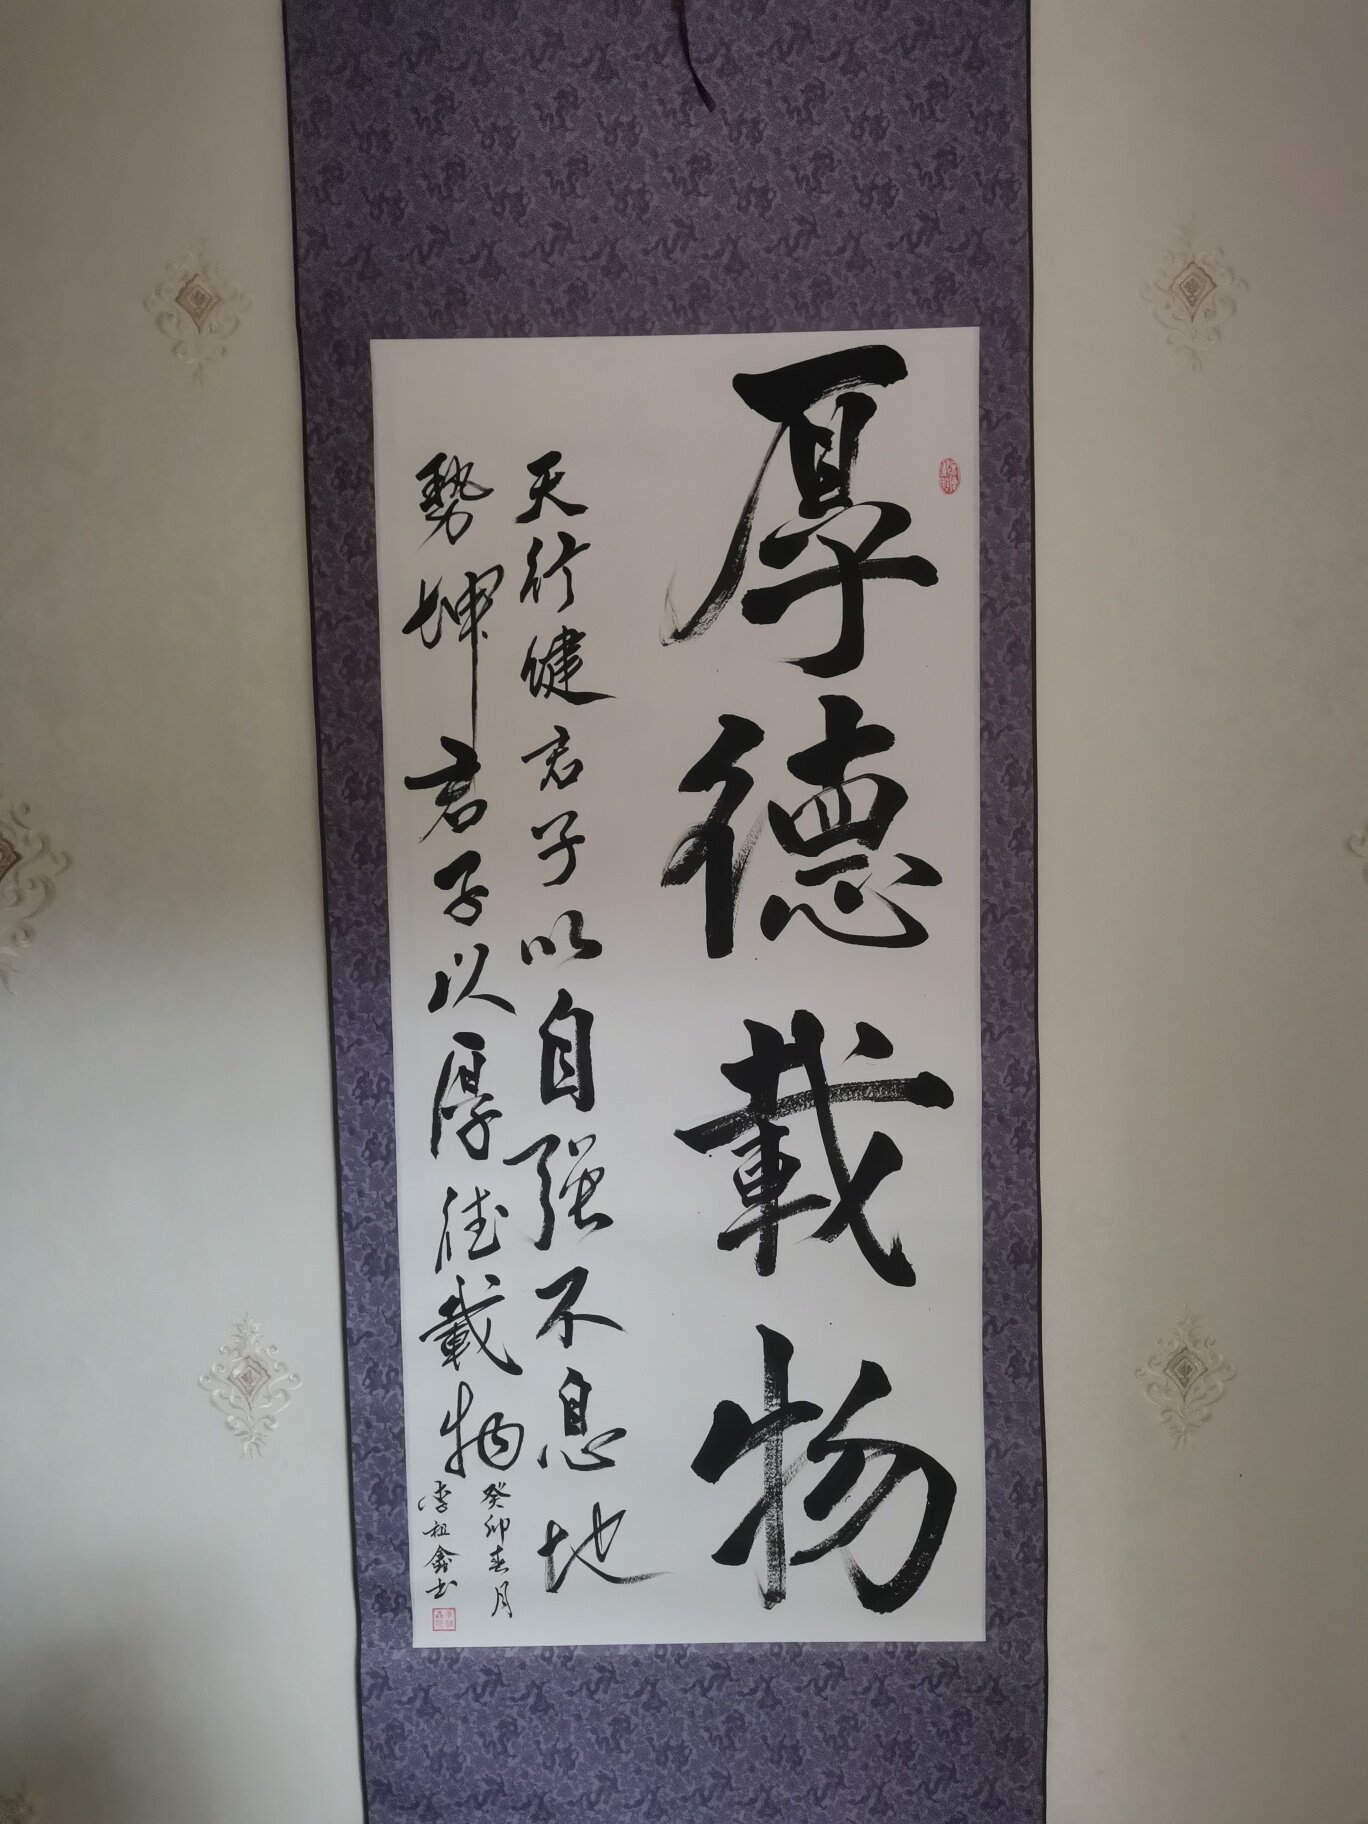 厚德載物
天行健君子以自强不息地
勢坤君子以厚德載物
癸卯春月
李祖鑫书